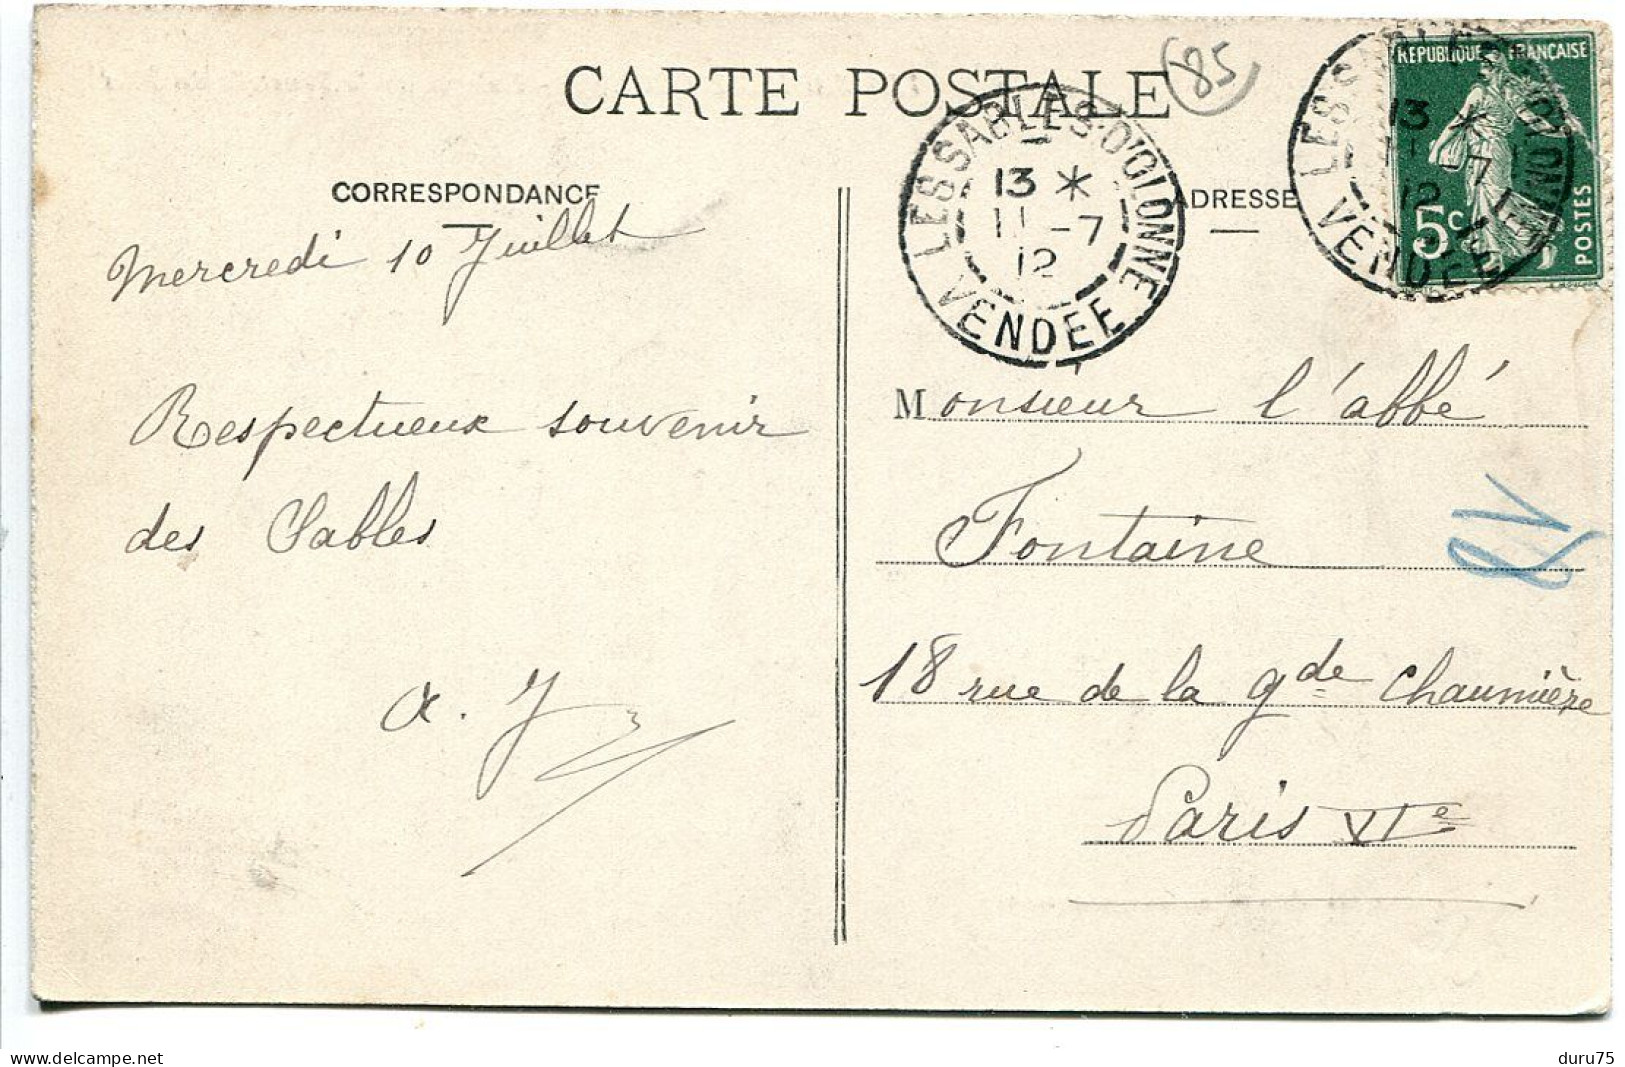 CARTE POSTALE
85
CORRESPONDANCE
ADRESSE
LES SABLES-D'OLONNE
13 *
11 -7
12
VENDÉE
RÉPUBLIQUE FRANÇAISE
5c
POSTES
LES SABLES-D'OLONNE
13 *
11 -7
12
VENDÉE
Mercredi 10 Juillet
Respectueux souvenir
des Sables
Monsieur l'abbé
Fontaine
18 rue de la gde Chaumière
Paris VIe
delcampe.net
duru75